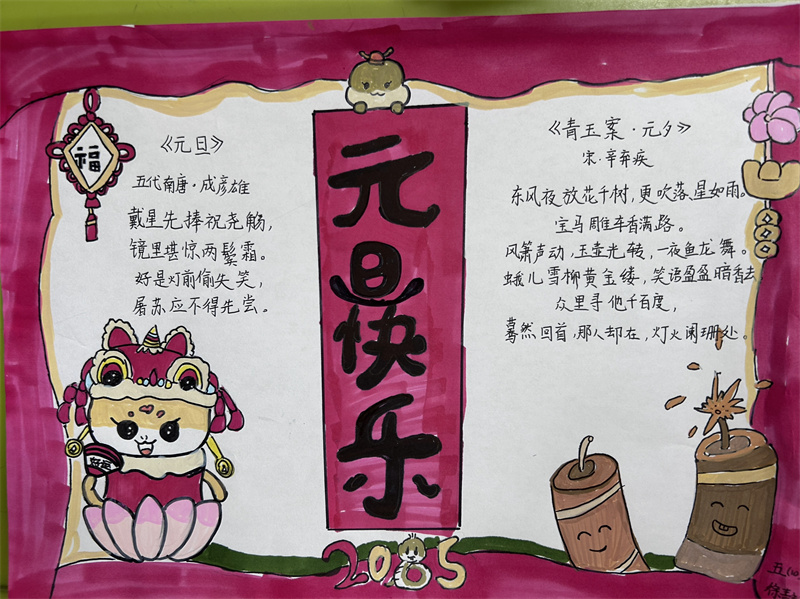 福
《元旦》
五代南唐·成彦雄
戴星先捧祝尧觞,
镜里堪惊两鬓霜。
好是灯前偷失笑,
屠苏应不得先尝。
好运
元旦快乐
2025
《青玉案·元夕》
宋·辛弃疾
东风夜放花千树,更吹落,星如雨。
宝马雕车香满路。
风箫声动,玉壶光转,一夜鱼龙舞。
蛾儿雪柳黄金缕,笑语盈盈暗香去
众里寻他千百度,
蓦然回首,那人却在,灯火阑珊处。